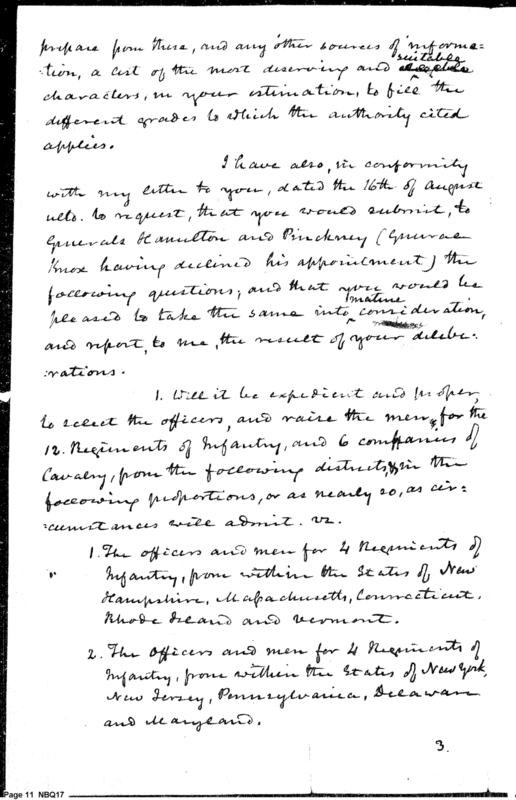 prepare from these, and any other sources of informa=
suitable
:tion, a list of the most deserving and
characters, in your estimation, to fill the
different grades to which the authority cited
applies.
I have also, in conformity
with my letter to you, dated the 16th of August
ulto. to request, that you would submit, to
Generals Hamilton and Pinckney (General
Knox having declined his appointment) the
following questions; and that you would be
mature
pleased to take the same into ^ consideration,
and report, to me, the result of your delibe:
:rations.
1. Will it be expedient and proper,
to select the officers, and raise the men, for the
12. Regiments of Infantry, and 6 companies of
Cavalry, from the following districts, & in the
following proportions, or as nearly so, as cir:
:cumstances will admit. vz.
1. The officers and men for 4 Regiments of
Infantry, from within the States of New
Hampshire, Massachusetts, Connecticut,
Rhode Island and Vermont.
2. The Officers and men for 4 Regiments of
Infantry, from within the States of New York,
New Jersey, Pennsylvania, Delaware
and Maryland.
3.
Page 11 NBQ17